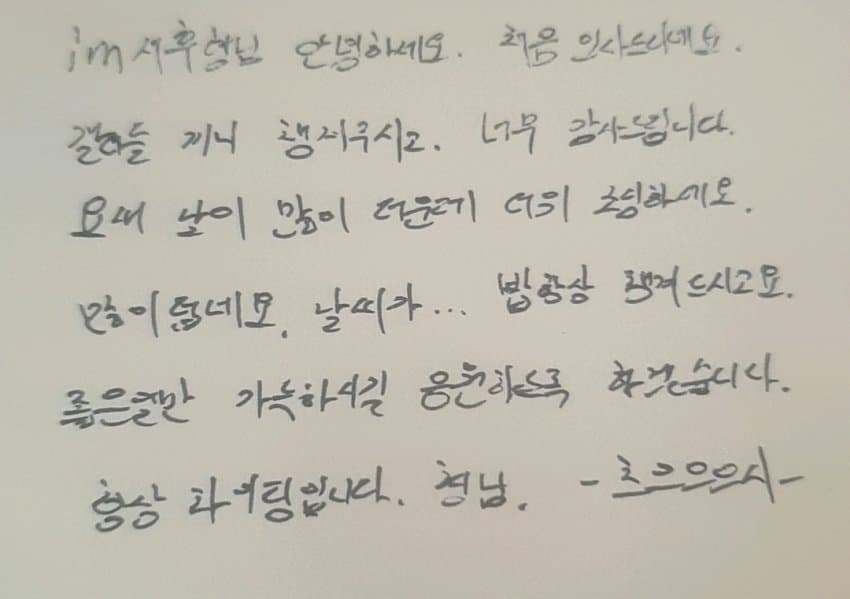 im서후형님 안녕하세요. 처음 인사드리네요.
끼니 챙겨주시고. 너무 감사드립니다.
요새 날이 많이 더운데 더위 조심하세요.
많이 덥네요. 날씨가... 밥항상 챙겨드시고요.
좋은일만 가득하시길 응원하도록 하겠습니다.
항상 화이팅입니다. 형님.